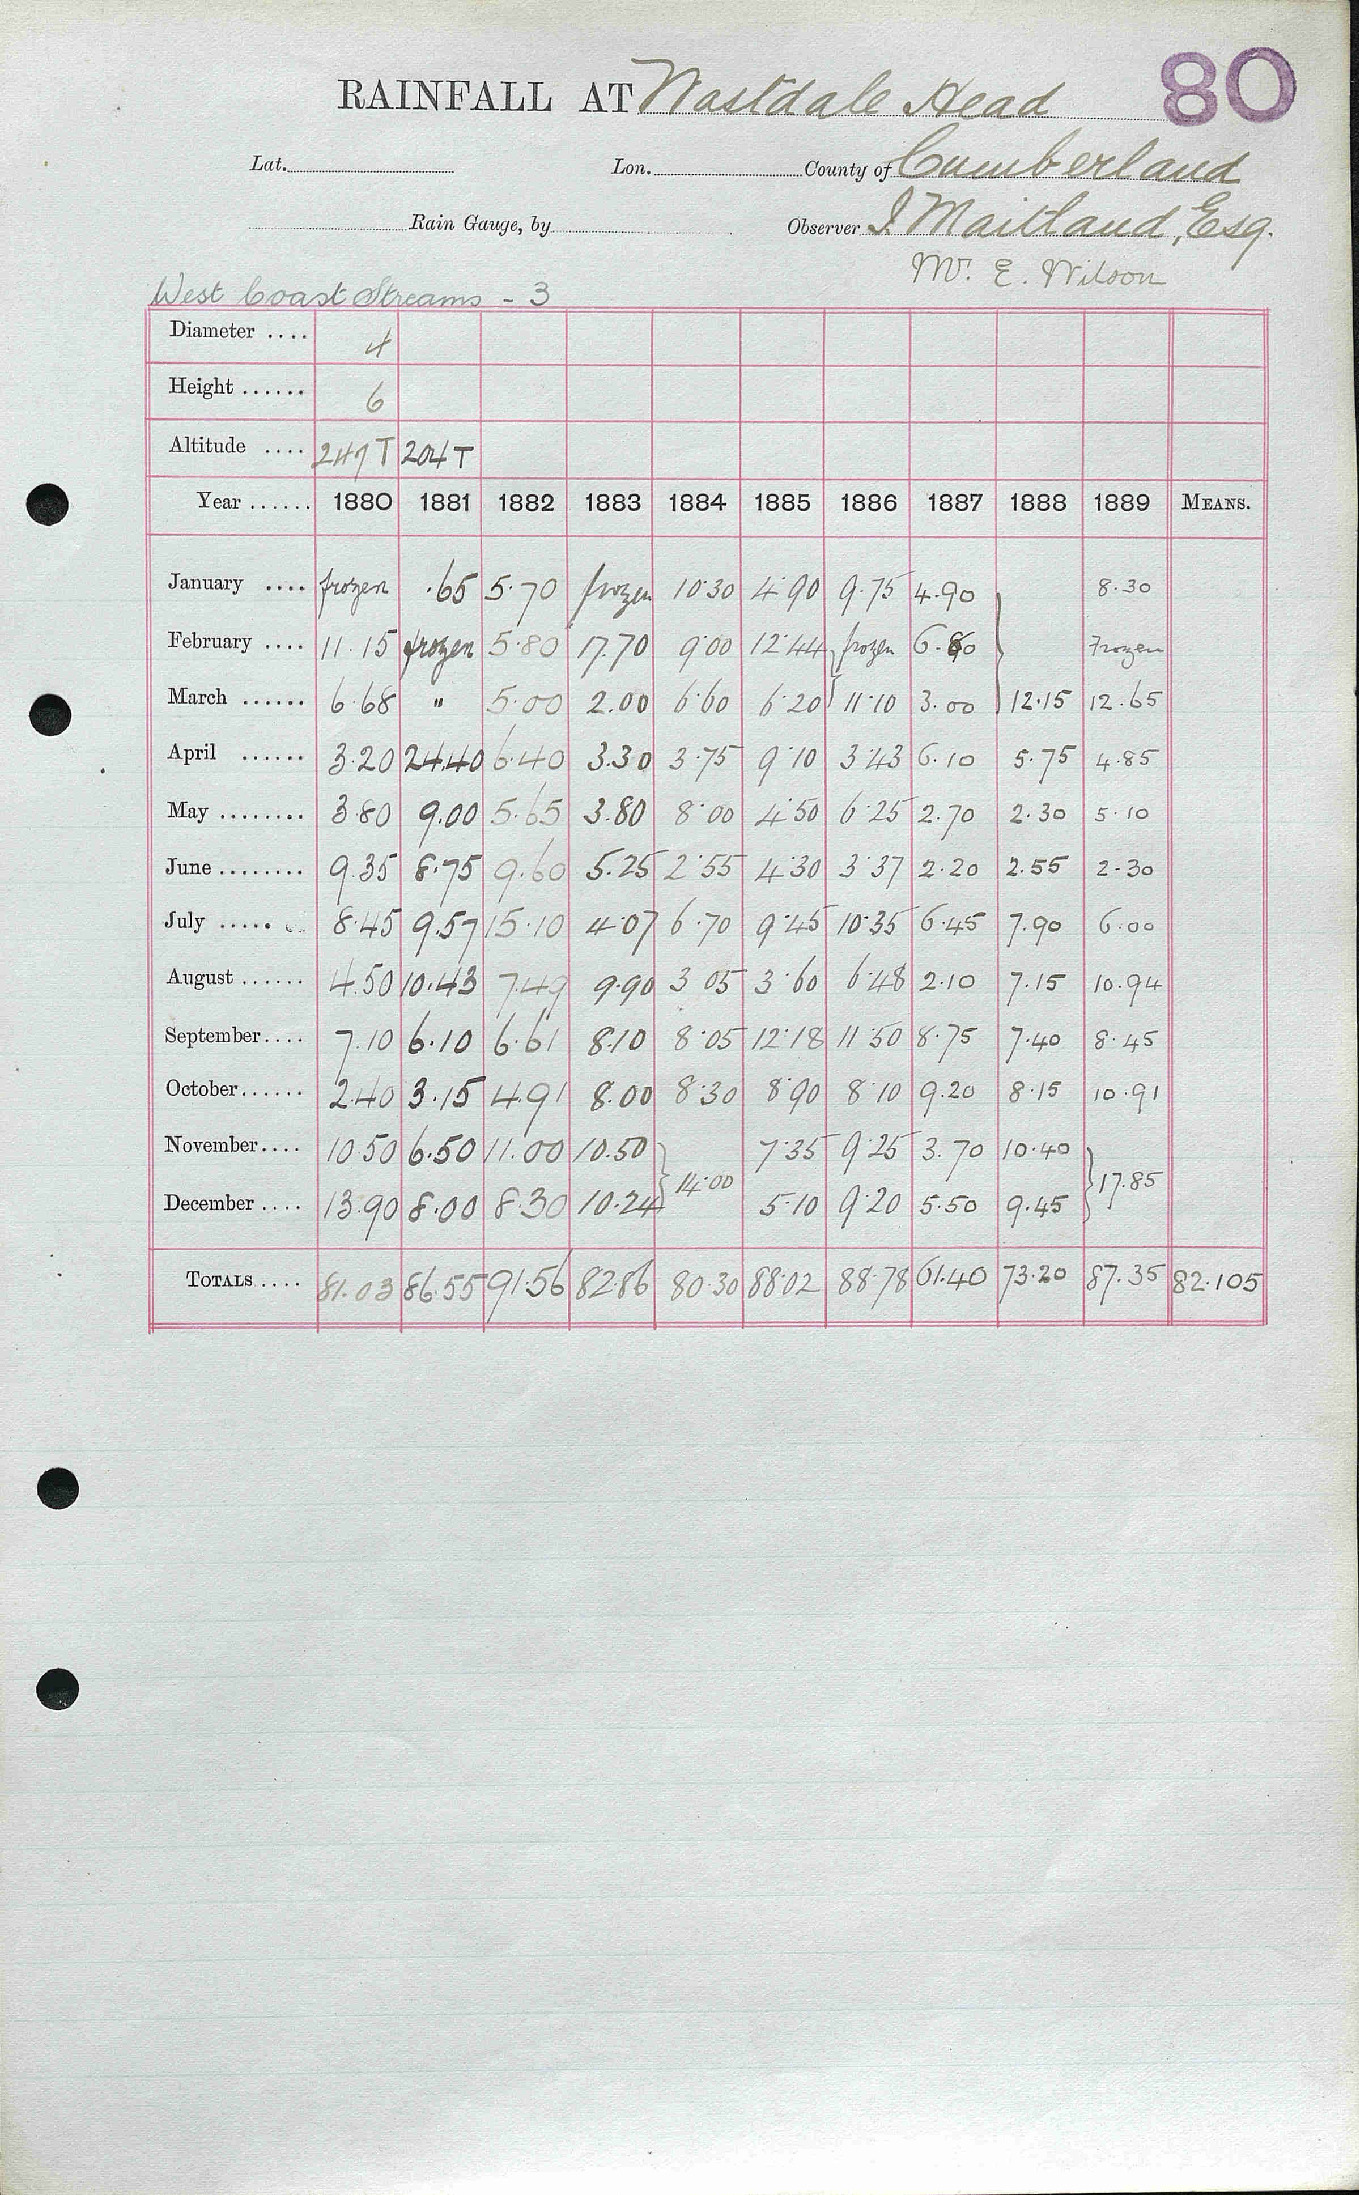 RAINFALL AT Wastdale Head 80
Lat. Lon. County of Cumberland
Rain Gauge, by Observer I. Maitland, Esq.
Mr. E. Wilson
West Coast Streams - 3
Diameter .... 4
Height ...... 6
Altitude .... 247 T 204 T
Year ...... 1880 1881 1882 1883 1884 1885 1886 1887 1888 1889 MEANS.
January .... frozen .65 5.70 frozen 10.30 4.90 9.75 4.90 8.30
February .... 11.15 frozen 5.80 17.70 9.00 12.44 frozen 6.80 Frozen
March ...... 6.68 " 5.00 2.00 6.60 6.20 11.10 3.00 12.15 12.65
April ...... 3.20 24.40 6.40 3.30 3.75 9.10 3.43 6.10 5.75 4.85
May ........ 3.80 9.00 5.65 3.80 8.00 4.50 6.25 2.70 2.30 5.10
June ........ 9.35 8.75 9.60 5.25 2.55 4.30 3.37 2.20 2.55 2.30
July ..... 8.45 9.57 15.10 4.07 6.70 9.45 10.35 6.45 7.90 6.00
August ...... 4.50 10.43 7.49 9.90 3.05 3.60 6.48 2.10 7.15 10.94
September.... 7.10 6.10 6.61 8.10 8.05 12.18 11.50 8.75 7.40 8.45
October...... 2.40 3.15 4.91 8.00 8.30 8.90 8.10 9.20 8.15 10.91
November.... 10.50 6.50 11.00 10.50 7.35 9.25 3.70 10.40
14.00 17.85
December .... 13.90 8.00 8.30 10.24 5.10 9.20 5.50 9.45
TOTALS..... 81.03 86.55 91.56 82.86 80.30 88.02 88.78 61.40 73.20 87.35 82.105